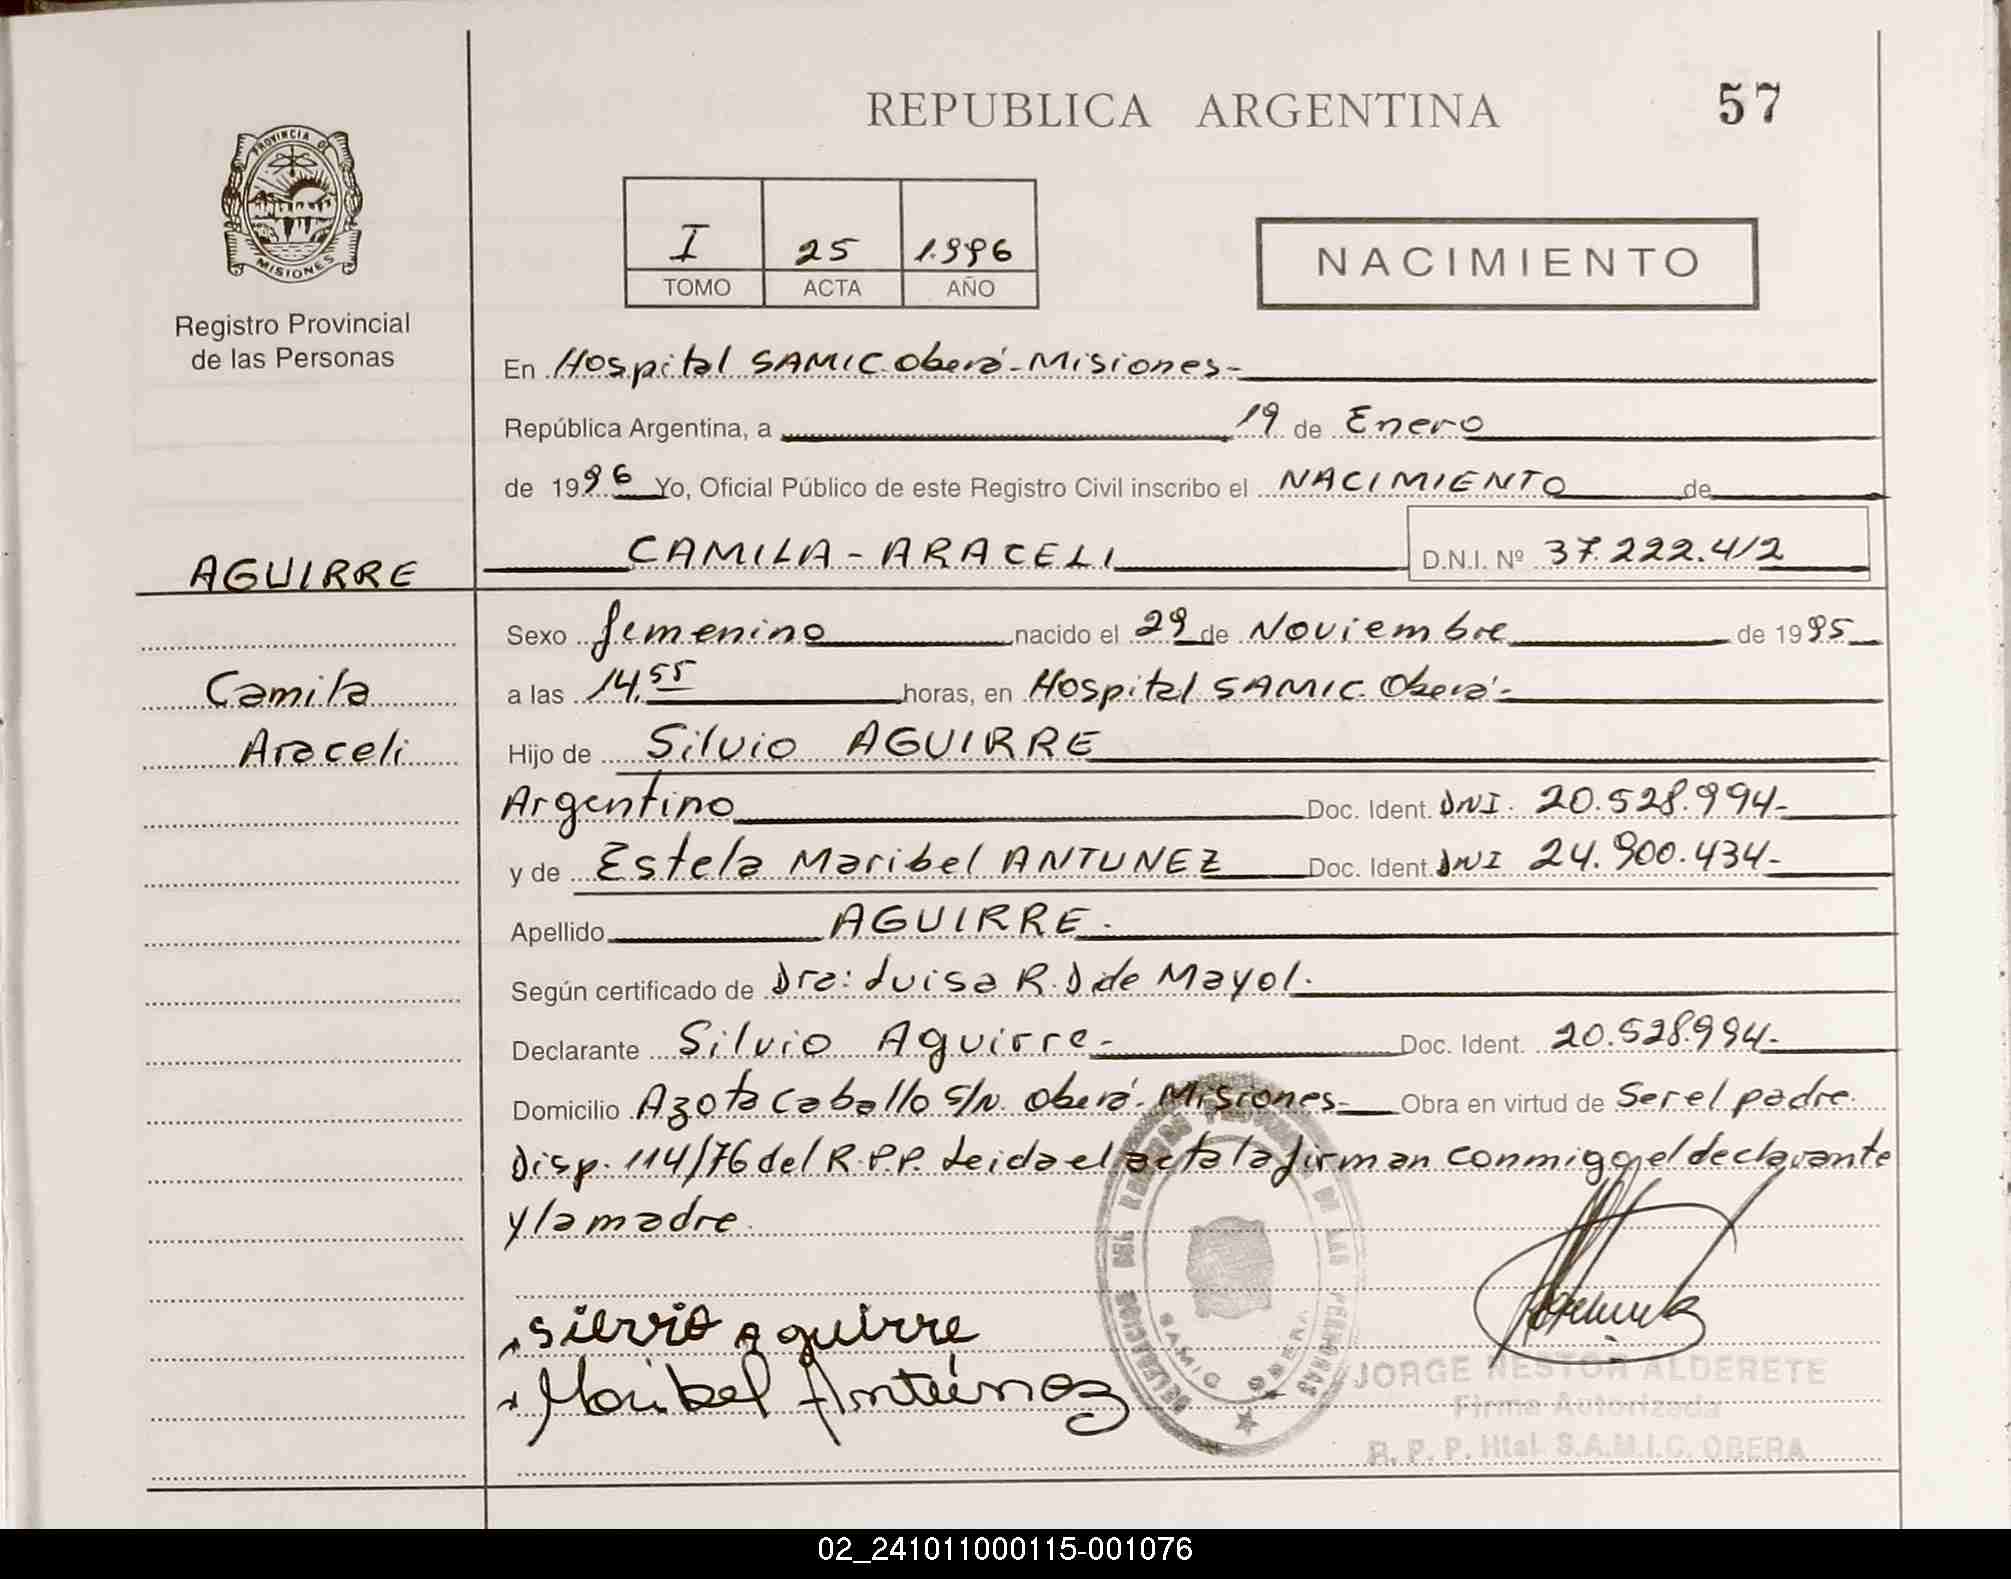 REPUBLICA ARGENTINA
57
PROVINCIA DE
MISIONES
Registro Provincial
de las Personas
I 25 1.996
TOMO ACTA AÑO
NACIMIENTO
En Hospital SAMIC. Oberá - Misiones -
República Argentina, a 19 de Enero
de 1996 Yo, Oficial Público de este Registro Civil inscribo el NACIMIENTO de
AGUIRRE
CAMILA - ARACELI D.N.I. Nº 37.222.412
Sexo femenino nacido el 29 de Noviembre de 1995
Camila
a las 14.55 horas, en Hospital SAMIC. Oberá -
Araceli
Hijo de Silvio AGUIRRE
Argentino Doc. Ident. DNI. 20.528.994-
y de Estela Maribel ANTUNEZ Doc. Ident. DNI 24.900.434-
Apellido AGUIRRE.
Según certificado de Dra: Luisa R. D de Mayol.
Declarante Silvio Aguirre - Doc. Ident. 20.528.994-
Domicilio Azota Caballo S/N. Oberá - Misiones - Obra en virtud de Ser el padre.
Disp. 114/76 del R.P.P. Leida el acta la firman conmigo el declarante
y la madre.
DELEGACION DEL REGISTRO PROVINCIAL DE LAS PERSONAS
SAMIC OBERA
Silvio Aguirre
Maribel Antúnez
JORGE NESTOR ALDERETE
Firma Autorizada
R. P. P. Htal. S.A.M.I.C. OBERA
02_241011000115-001076